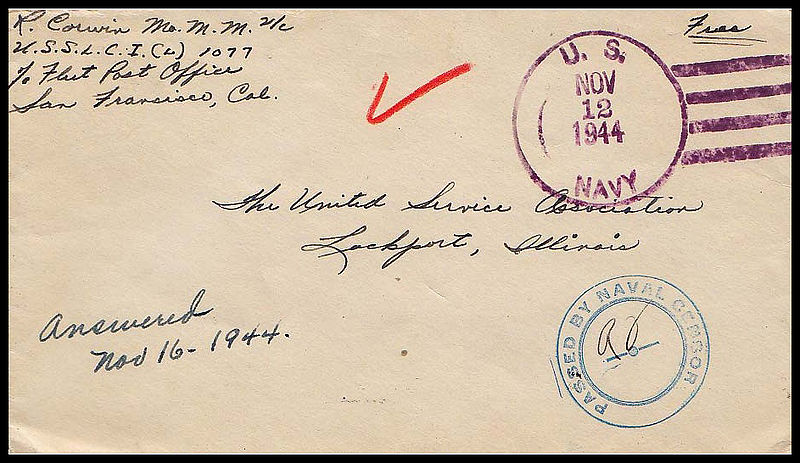 R. Corwin Mo. M. M. 2/c
U.S.S. L.C.I. (L) 1077
℅ Fleet Post Office
San Francisco, Cal.
Free
U. S.
NOV
12
1944
NAVY
The United Service Association
Lockport, Illinois
Answered
Nov 16-1944.
PASSED BY NAVAL CENSOR